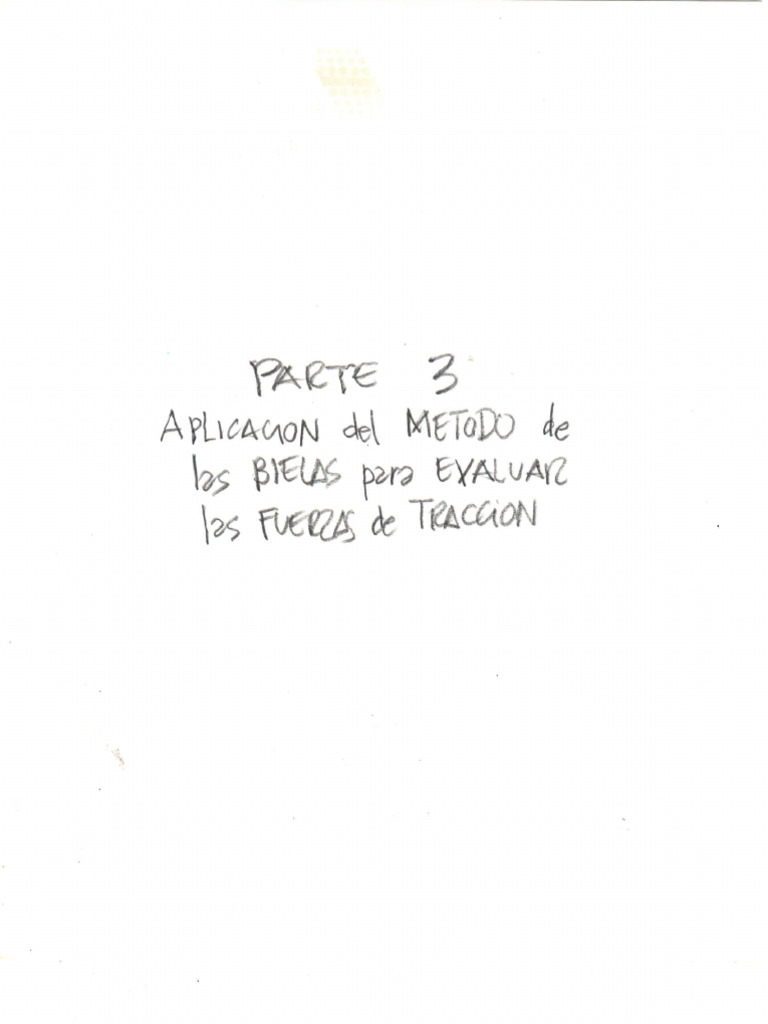 PARTE 3
APLICACION del METODO de
las BIELAS para EVALUAR
las FUERZAS de TRACCION